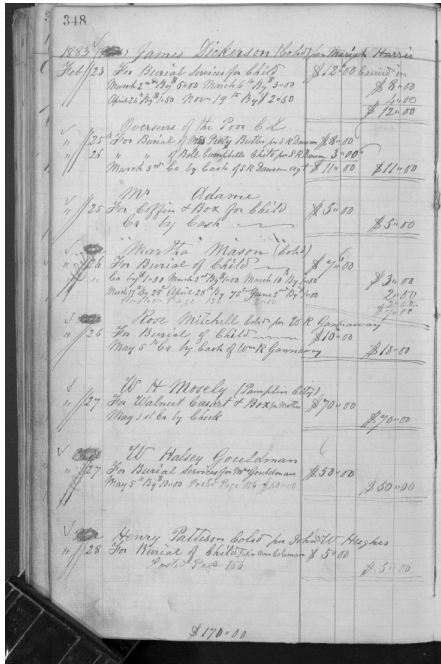 348
1883 James Dickerson (Cold) for Mariah Harris
Feb / 23 For Burial Services for Child $12.00 Carried on
March 2nd By $5.00 March 6th By $3.00 $8.00
April 24th By $1.50 Nov 19th By $2.50 4.00
$12.00
Overseers of the Poor C.C.
" / 25th For Burial of Mrs Butler per S R Dawson $8.00
" / 26 " " of Bell Campbells Child per S R Dawson 3.00
March 3rd Cr by Cash of S R Dawson agt $11.00 $11.00
Mr Adams
" / 25 For Coffin & Box for Child $5.00
Cr by Cash $5.00
"Martha" Mason (Cold)
" / 26 For Burial of Child $7.00
" Cr By $1.00 March 3rd By $1.00 March 10th By $1.00 $3.00
2.00
2.00
$7.00
Rose Mitchell Cold per W R Gannaway
" / 26 For Burial of Child $10.00
May 5th Cr by Cash of Wm R Gannaway $10.00
W H Mosely (Pamplin City)
" / 27 For Walnut Casket & Box for Mother $70.00
May 1st Cr by Check $70.00
W Halsey Gouldman
" / 27 For Burial Services for Mrs Gouldman $50.00
May 5th By $10.00 Posted Page $50.00
Henry Patteson Cold per John W Hughes
" / 28 For Burial of Child $5.00
Posted Page $5.00
$170.00